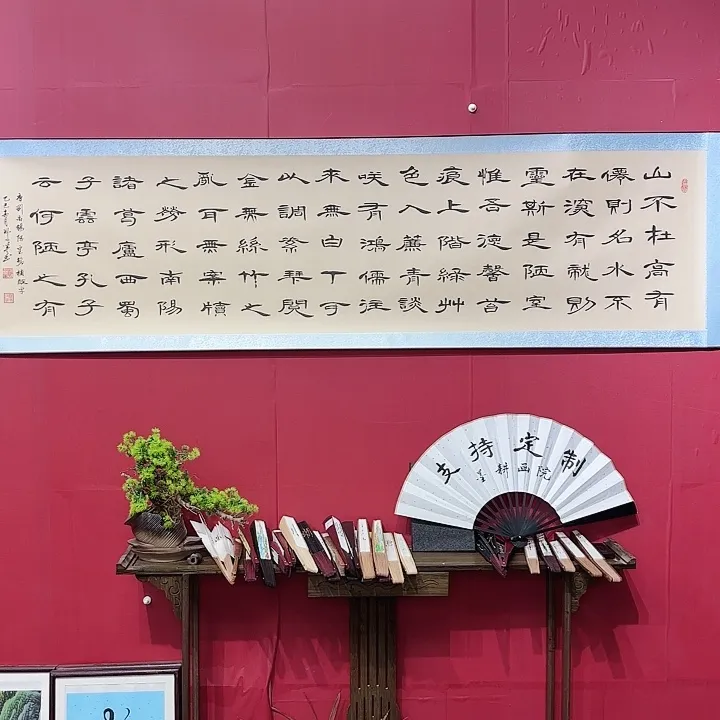 山不在高有
僊則名水不
在深有龍則
靈斯是陋室
惟吾德馨苔
痕上階綠艸
色入簾青談
咲有鴻儒往
来無白丁可
以調素琴閱
金無絲竹之
亂耳無案牘
之勞形南陽
諸葛廬西蜀
子雲亭孔子
云何陋之有
唐劉禹錫陋室銘
支持定制
墨耕画院